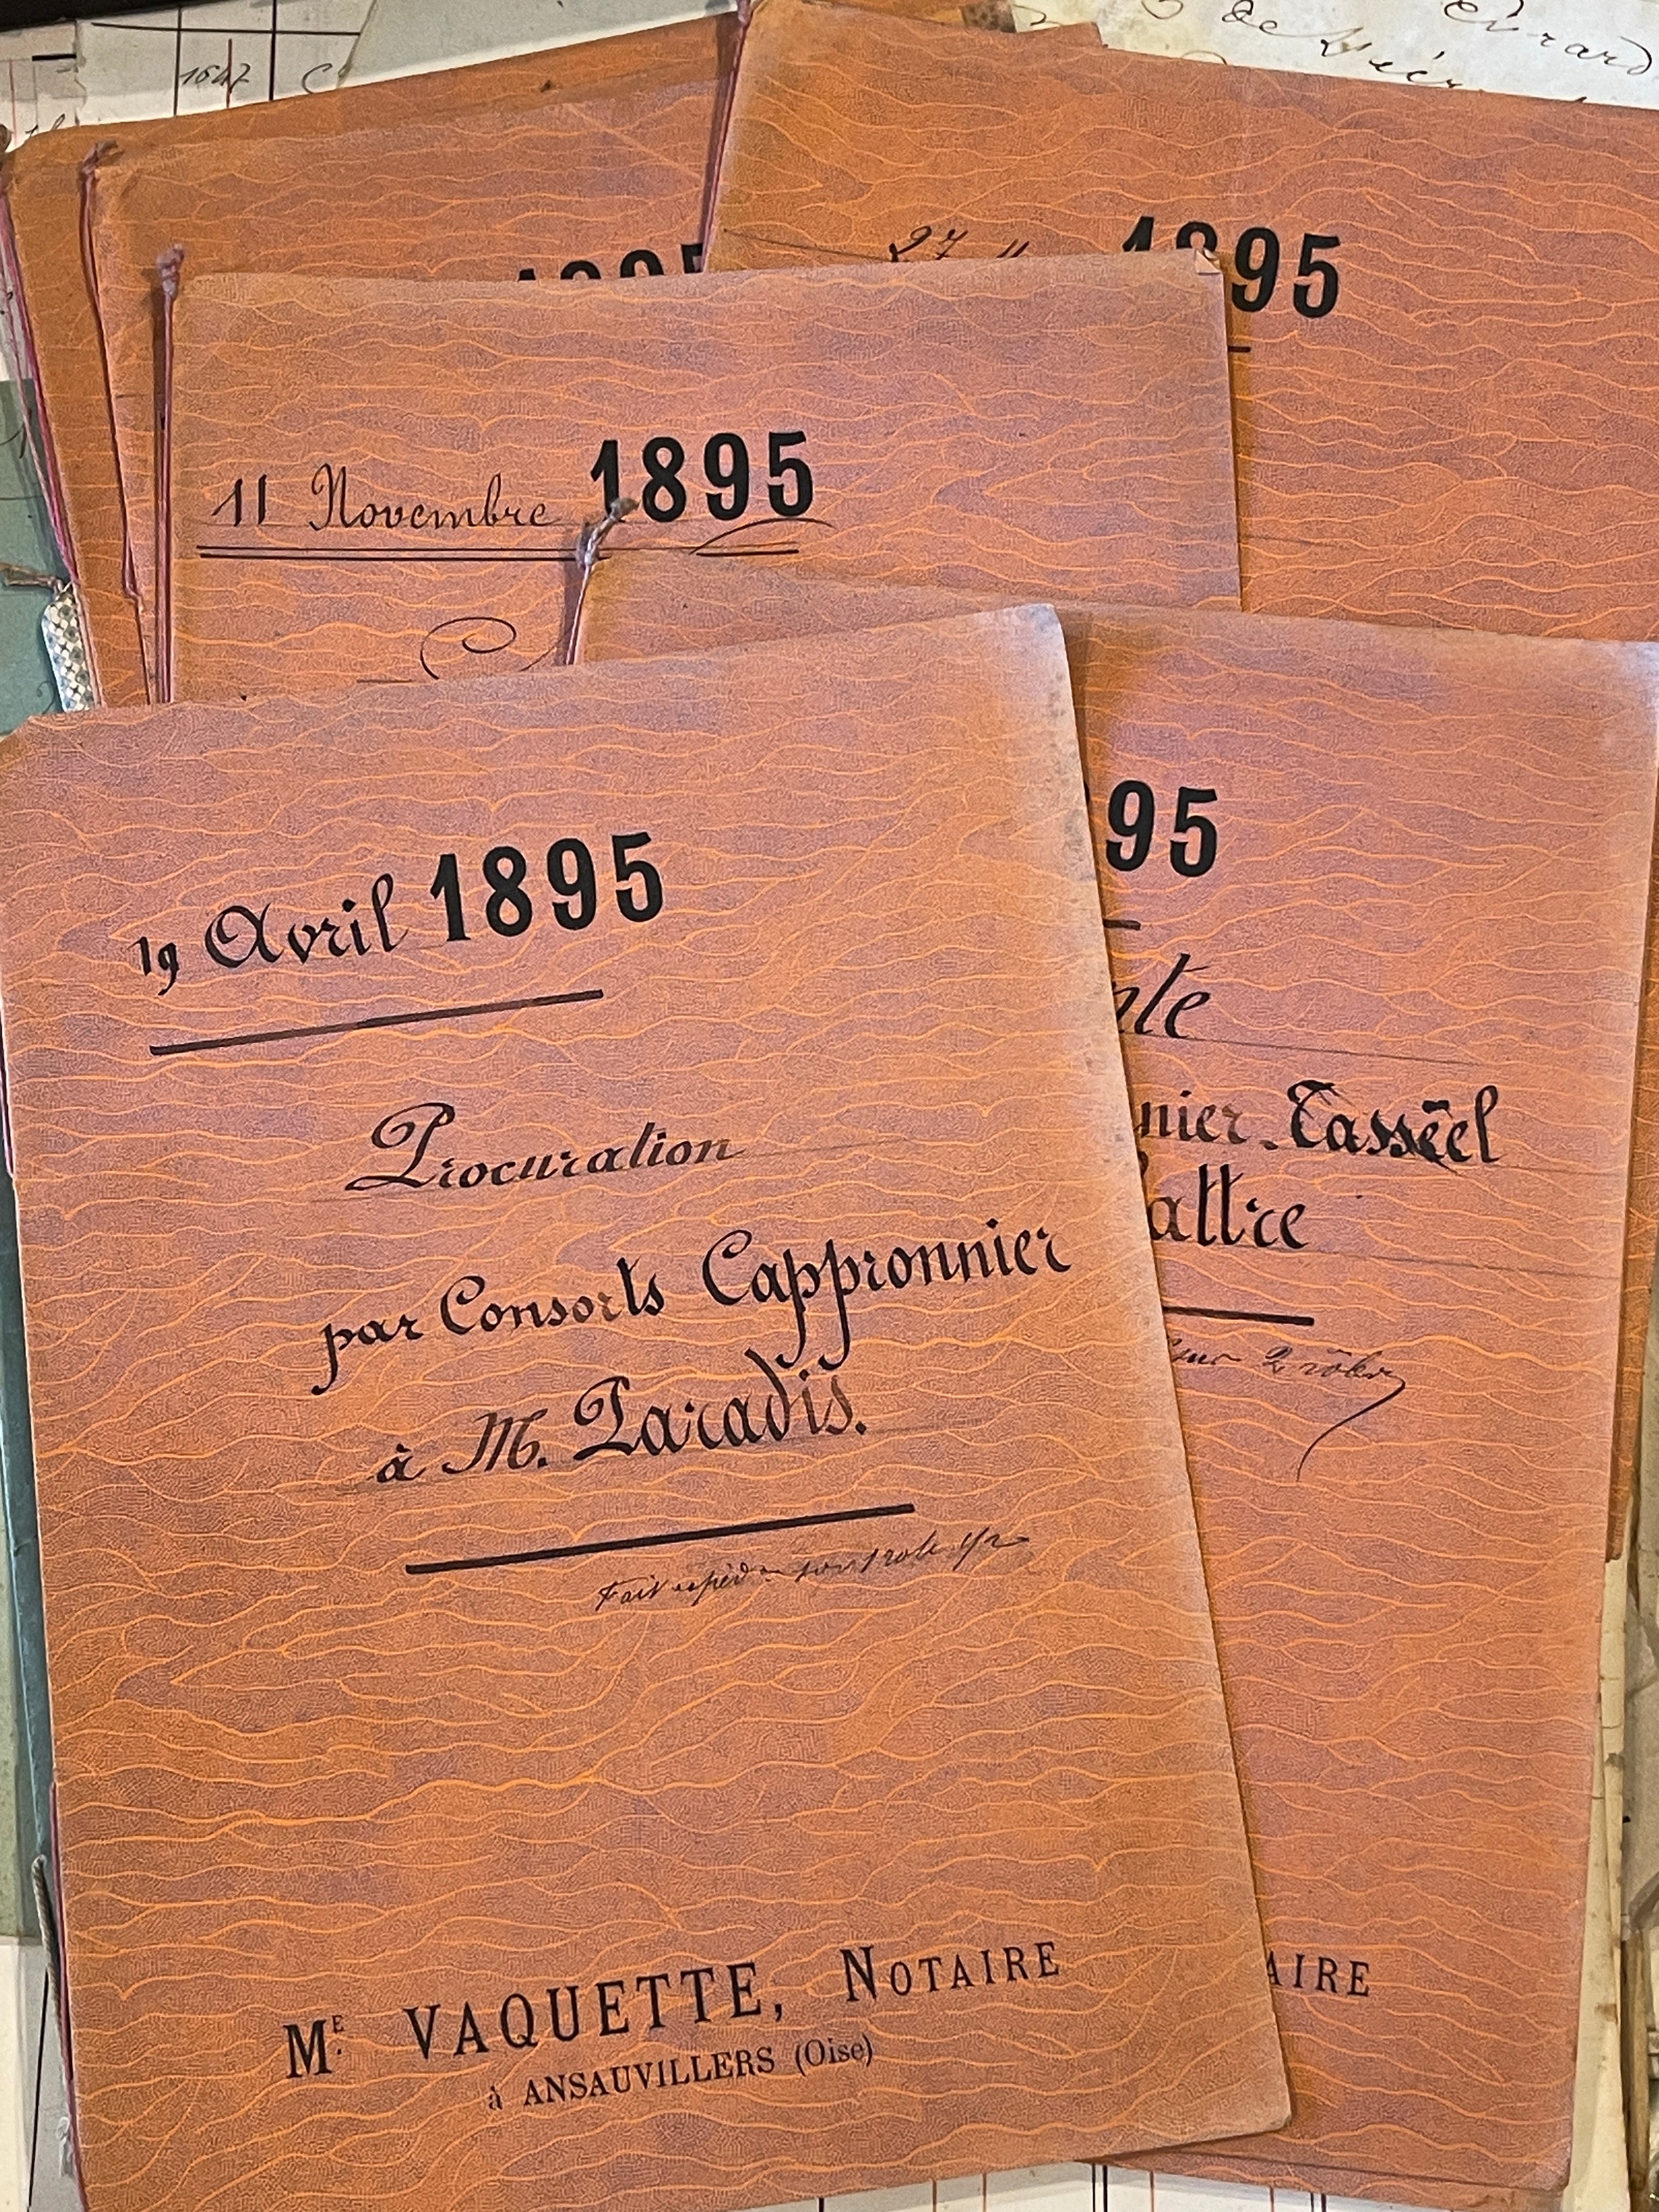 1647
de
1895
27
1895
11 Novembre 1895
19 Avril 1895
Procuration
par Consorts Cappronnier
à M. Paradis.
Fait
ME. VAQUETTE, NOTAIRE
à ANSAUVILLERS (Oise)
95
nte
nier-Tasséel
attre
2 rôles
AIRE